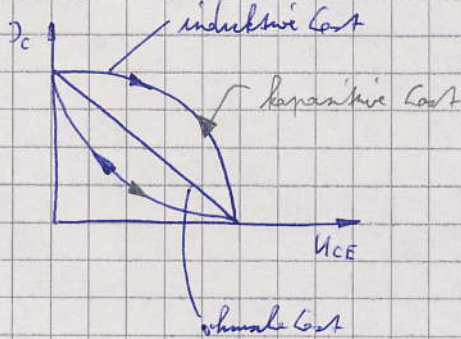 induktive Last
I_C
kapazitive Last
U_CE
ohmsche Last